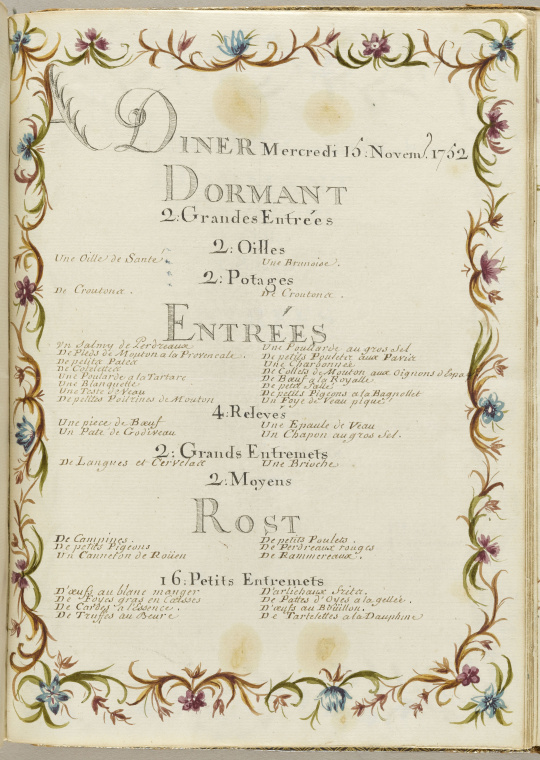 A DINER Mercredi 15: Novem. 1752
DORMANT
2: Grandes Entrées
2: Oilles
Une Oille de Santé
Une Brunoise.
2: Potages
De Croutons.
De Croutons.
ENTRÉES
Un Salmy de Perdreaux
De Pieds de Mouton a la Provencale.
De petits Patés
De Cotelettes
Une Poularde a la Tartare
Une Blanquette
Une Teste de Veau
De petites Poitrines de Mouton
Une Poullarde au gros Sel
De petits Poulets aux Pavis
Une Charbonnée
De Collets de Mouton aux Oignons d'
De Bœuf a la Royalle
De petit Salé
De petits Pigeons a la Bagnollet
Un Foye de Veau piqué
4: Relevés
Une piece de Bœuf
Un Paté de Godiveau
Une Epaule de Veau
Un Chapon au gros Sel.
2: Grands Entremets
De Langues et Cervelats
Une Brioche
2: Moyens
ROST
De Campines.
De petits Pigeons
Un Canneton de Roüen
De petits Poulets.
De Perdreaux rouges
De Rammereaux.
16: Petits Entremets
D'œufs au blanc manger
De Foyes gras en Caisses
De Cardes a l'essence.
De Truffes au Beure
D'artichaux frits.
De Pattes d'Oyes a la gellée.
D'œufs au Bouillon.
De Tartelettes a la Dauphine